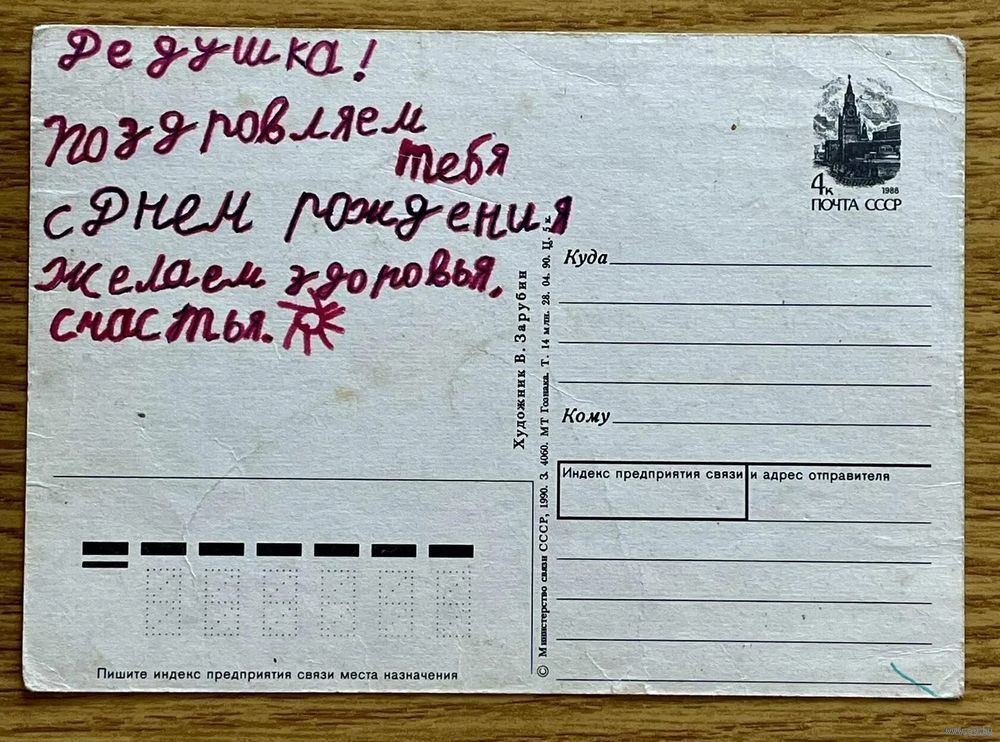 Дедушка!
поздровляем
тебя
с Днем рождения
желаем здоровья,
счастья.
4к
1988
ПОЧТА СССР
Куда
Кому
Индекс предприятия связи и адрес отправителя
Художник В. Зарубин
© Министерство связи СССР, 1990. З. 4060. МТ Гознака. Т. 14 млн. 28. 04. 90. Ц. 5 к.
Пишите индекс предприятия связи места назначения